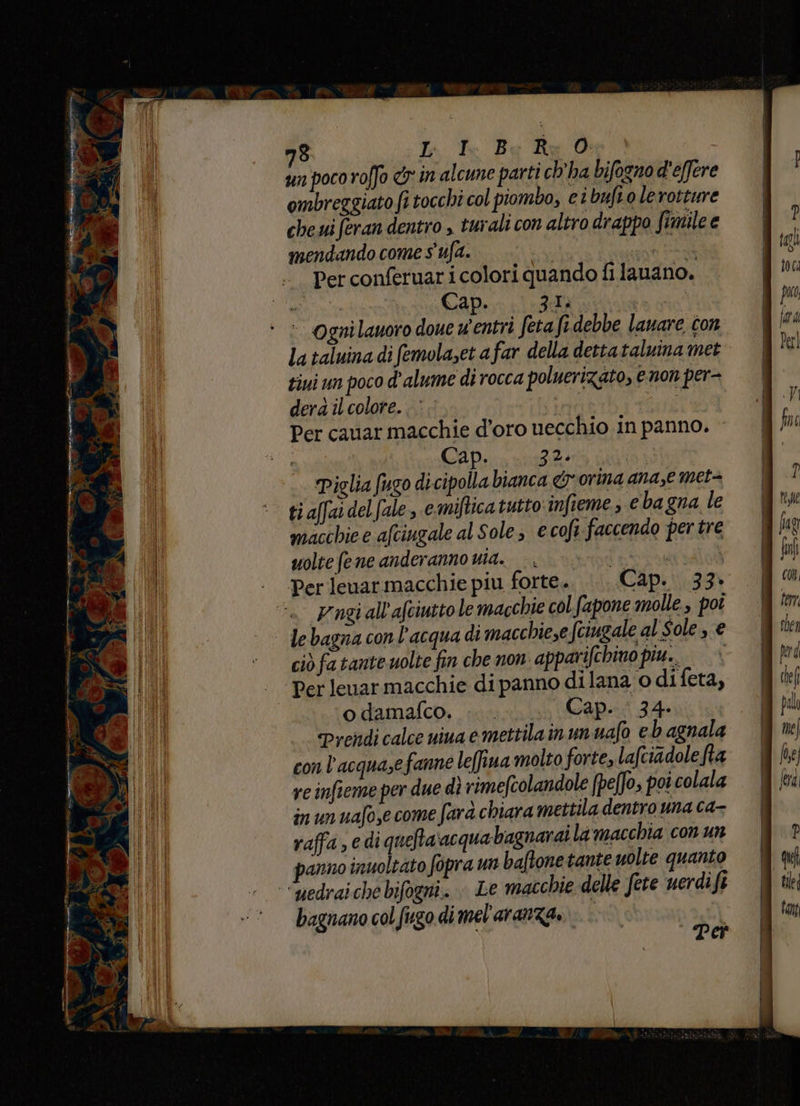 78 L I B R O
un poco roſſo & in alcune parti ch'ha biſogno d'eſſere
ombreggiato ſi tocchi col piombo, e i buſi o le rotture
che ui ſeran dentro, turali con altro drappo ſimile e
mendando come s'uſa.
Per conſeruar i colori quando ſi lauano.
Cap. 31.
Ogni lauoro doue u'entri ſeta ſi debbe lauare con
la taluina di ſemola, et a far della detta taluina met
tiui un poco d'alume di rocca poluerizato, e non per-
derà il colore.
Per cauar macchie d'oro uecchio in panno.
Cap. 32.
Piglia ſugo di cipolla bianca & orina ana, e met-
ti aſſai del ſale, e miſtica tutto inſieme, e bagna le
macchie e aſciugale al Sole, e coſi faccendo per tre
uolte ſe ne anderanno uia.
Per leuar macchie piu forte. Cap. 33.
Vngi all'aſciutto le macchie col ſapone molle, poi
le bagna con l'acqua di macchie, e ſciugale al Sole, e
ciò fa tante uolte fin che non appariſchino piu.
Per leuar macchie di panno di lana o di ſeta,
o damaſco. Cap. 34.
Prendi calce uiua e mettila in un uaſo e b agnala
con l'acqua, e fanne leſſiua molto forte, laſciādole ſta
re inſieme per due dì rimeſcolandole ſpeſſo, poi colala
in un uaſo, e come ſarà chiara mettila dentro una ca-
raffa, e di queſta acqua bagnarai la macchia con un
panno inuoltato ſopra un baſtone tante uolte quanto
uedrai che biſogni. Le macchie delle ſete uerdi ſi
bagnano col ſugo di mel'aranza.
Per